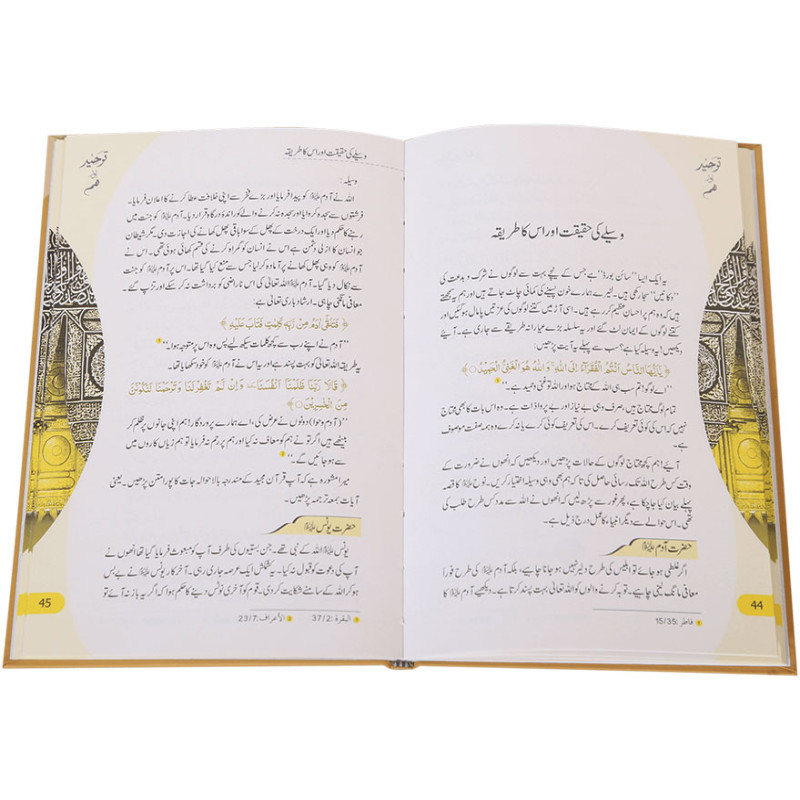 توحید
اور
ہم
وسیلے کی حقیقت اور اس کا طریقہ
یہ ایک ایسا ’’سائن بورڈ‘‘ ہے جس کے نیچے بہت سے لوگوں نے شرک و بدعت کی
’’دکانیں‘‘ سجا رکھی ہیں۔ لٹیرے ہمارے خون پسینے کی کمائی چاٹ جاتے ہیں اور ہم یہ سمجھتے
ہیں کہ وہ ہم پر احسانِ عظیم کر رہے ہیں۔ اسی آڑ میں کتنے لوگوں کی عزتیں پامال ہوگئیں اور
کتنے لوگوں کے ایمان لٹ گئے اور یہ سلسلہ بڑے عیارانہ طریقے سے جاری ہے۔ آیئے
دیکھیں! یہ وسیلہ کیا ہے؟ سب سے پہلے یہ آیت پڑھیں:
﴿ يٰۤاَيُّهَا النَّاسُ اَنْتُمُ الْفُقَرَآءُ اِلَى اللّٰهِ ۚ وَاللّٰهُ هُوَ الْغَنِيُّ الْحَمِيْدُ ﴾
’’اے لوگو! تم سب ہی اللہ کے محتاج ہو اور اللہ تو غنی و حمید ہے۔‘‘
تمام لوگ محتاج ہیں، صرف وہی بے نیاز اور بے پروا ذات ہے۔ وہ اس بات کا بھی محتاج
نہیں کہ اس کی کوئی تعریف کرے۔ اس کی تعریف کوئی کرے یا نہ کرے وہ ہمہ صفت موصوف
ہے۔
آیئے! ہم کچھ محتاج لوگوں کے حالات پڑھیں اور دیکھیں کہ انھوں نے ضرورت کے
وقت کس طرح اللہ تک رسائی حاصل کی تاکہ ہم بھی وہی وسیلہ اختیار کریں۔ نوح علیہ السلام کا قصہ
پہلے بیان کیا جا چکا ہے، پھر غور سے پڑھ لیں کہ انھوں نے اللہ سے مدد کس طرح طلب کی
تھی۔ اس حوالے سے دیگر انبیاء کا عمل درج ذیل ہے۔
حضرت آدم علیہ السلام
اگر غلطی ہو جائے تو ابلیس کی طرح دلیر نہیں ہو جانا چاہیے، بلکہ آدم علیہ السلام کی طرح فوراً
معافی مانگ لینی چاہیے۔ توبہ کرنے والوں کو اللہ تعالیٰ بہت پسند کرتا ہے۔ دیکھیے آدم علیہ السلام کا
فاطر :15/35
44
توحید
اور
ہم
وسیلے کی حقیقت اور اس کا طریقہ
وسیلہ:
اللہ نے آدم علیہ السلام کو پیدا فرمایا اور بڑے فخر سے اپنی خلافت عطا کرنے کا اعلان فرمایا۔
فرشتوں سے سجدہ کروایا اور سجدہ نہ کرنے والے کو راندۂ درگاہ قرار دیا۔ آدم علیہ السلام کو جنت میں
رہنے کا حکم دیا اور ایک درخت کے پھل کے سوا باقی پھل کھانے کی اجازت دی۔ مگر شیطان
جو انسان کا ازلی دشمن ہے اس نے انسان کو گمراہ کرنے کی قسم کھائی ہوئی تھی۔ اس نے
آدم علیہ السلام کو وہی پھل کھانے پر آمادہ کر لیا جس سے منع کیا گیا تھا۔ اس پر آدم علیہ السلام کو جنت
سے نکال دیا گیا۔ آدم علیہ السلام اللہ تعالیٰ کی اس ناراضی کو برداشت نہ کر سکے اور تڑپ گئے۔
معافی مانگنی چاہی۔ ارشاد باری تعالیٰ ہے:
﴿ فَتَلَقّٰۤى اٰدَمُ مِنْ رَّبِّهٖ كَلِمٰتٍ فَتَابَ عَلَيْهِ ﴾
’’آدم نے اپنے رب سے کچھ کلمات سیکھ لیے پس وہ اس پر متوجہ ہوا۔‘‘
یہ طریقہ اللہ تعالیٰ کو بہت پسند ہے اور یہ اس نے آدم علیہ السلام کو خود سکھایا تھا۔
﴿ قَالَا رَبَّنَا ظَلَمْنَاۤ اَنْفُسَنَا ٚ وَاِنْ لَّمْ تَغْفِرْ لَنَا وَتَرْحَمْنَا لَنَكُوْنَنَّ
مِنَ الْخٰسِرِيْنَ ﴾
’’(آدم و حوا) دونوں نے عرض کی، اے ہمارے پروردگار! ہم اپنی جانوں پر ظلم کر
بیٹھے ہیں اگر تو نے ہم کو معاف نہ کیا اور ہم پر رحم نہ فرمایا تو ہم زیاں کاروں میں
سے ہو جائیں گے۔‘‘
میرا مشورہ ہے کہ آپ قرآن مجید کے مندرجہ بالا حوالہ جات کا پورا متن پڑھیں۔ یعنی
آیات بمعہ ترجمہ پڑھیں۔
حضرت یونس علیہ السلام
یونس علیہ السلام اللہ کے نبی تھے۔ جن بستیوں کی طرف آپ کو مبعوث فرمایا گیا تھا انھوں نے
آپ کی دعوت کو قبول نہ کیا۔ یہ کشمکش ایک عرصہ جاری رہی۔ آخر کار یونس علیہ السلام نے بے بس
ہو کر اللہ کے سامنے شکایت کر دی۔ قوم کو آخری نوٹس دینے کا حکم ہوا کہ اگر یہ باز نہ آئے تو
البقرة :37/2 الأعراف :23/7
45